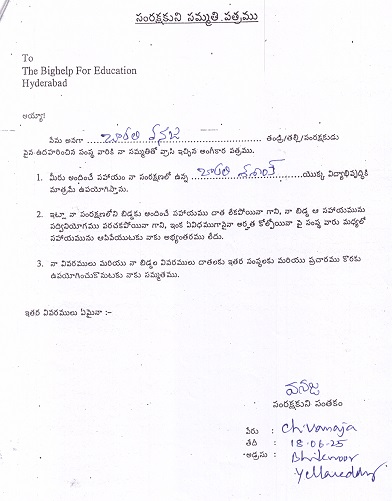 సంరక్షకుని సమ్మతి పత్రము
To
The Bighelp For Education
Hyderabad
అయ్యా!
నేను అనగా ........ వనజ ........ తండ్రి/తల్లి/సంరక్షకుడు
పైన ఉదహరించిన సంస్థ వారికి నా సమ్మతితో వ్రాసి ఇచ్చిన అంగీకార పత్రము.
1. మీరు అందించే సహాయం నా సంరక్షణలో ఉన్న ........ యొక్క విద్యాభివృద్ధికి
మాత్రమే ఉపయోగిస్తాను.
2. ఇట్లా నా సంరక్షణలోని బిడ్డకు అందించే సహాయము దాత లేకపోయినా గాని, నా బిడ్డ ఆ సహాయమును
సద్వినియోగము పరచకపోయినా గాని, ఇంక ఏవిధముగానైనా అర్హత కోల్పోయినా పై సంస్థ వారు మధ్యలో
సహాయమును ఆపివేయుటకు నాకు అభ్యంతరము లేదు.
3. నా వివరములు మరియు నా బిడ్డల వివరములు దాతలకు ఇతర సంస్థలకు మరియు ప్రచారము కొరకు
ఉపయోగించుకొనుటకు నాకు సమ్మతము.
ఇతర వివరములు ఏమైనా :-
వనజ
సంరక్షకుని సంతకం
పేరు : Ch Vanaja
తేదీ : 18-06-25
అడ్రసు : Bhiknoor
Yellareddy